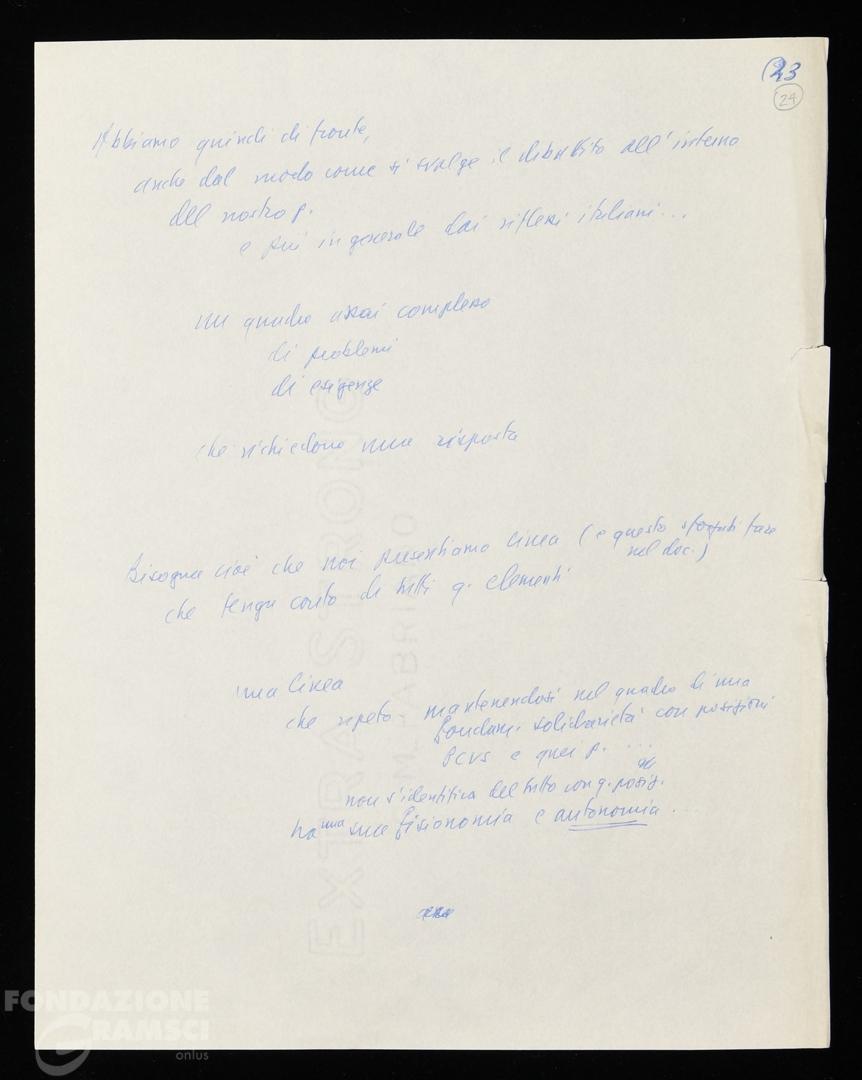 23
24
Abbiamo quindi di fronte,
anche dal modo come si svolge il dibattito all'interno
del nostro p.
e più in generale dai riflessi italiani...
un quadro assai complesso
di problemi
di esigenze
che richiedono una risposta
Bisogna cioè che noi presentiamo linea (e questo sforzati fare
nel doc.)
che tenga conto di tutti q. elementi
una linea
che ripeto mantenendosi nel quadro di una
fondam. solidarietà con posizioni
PCUS e quei p. ...
non s'identifica del tutto con q. posiz.
ha una sua fisionomia e autonomia...
EXTRA STRONG
FABRIANO
FONDAZIONE
GRAMSCI
onlus